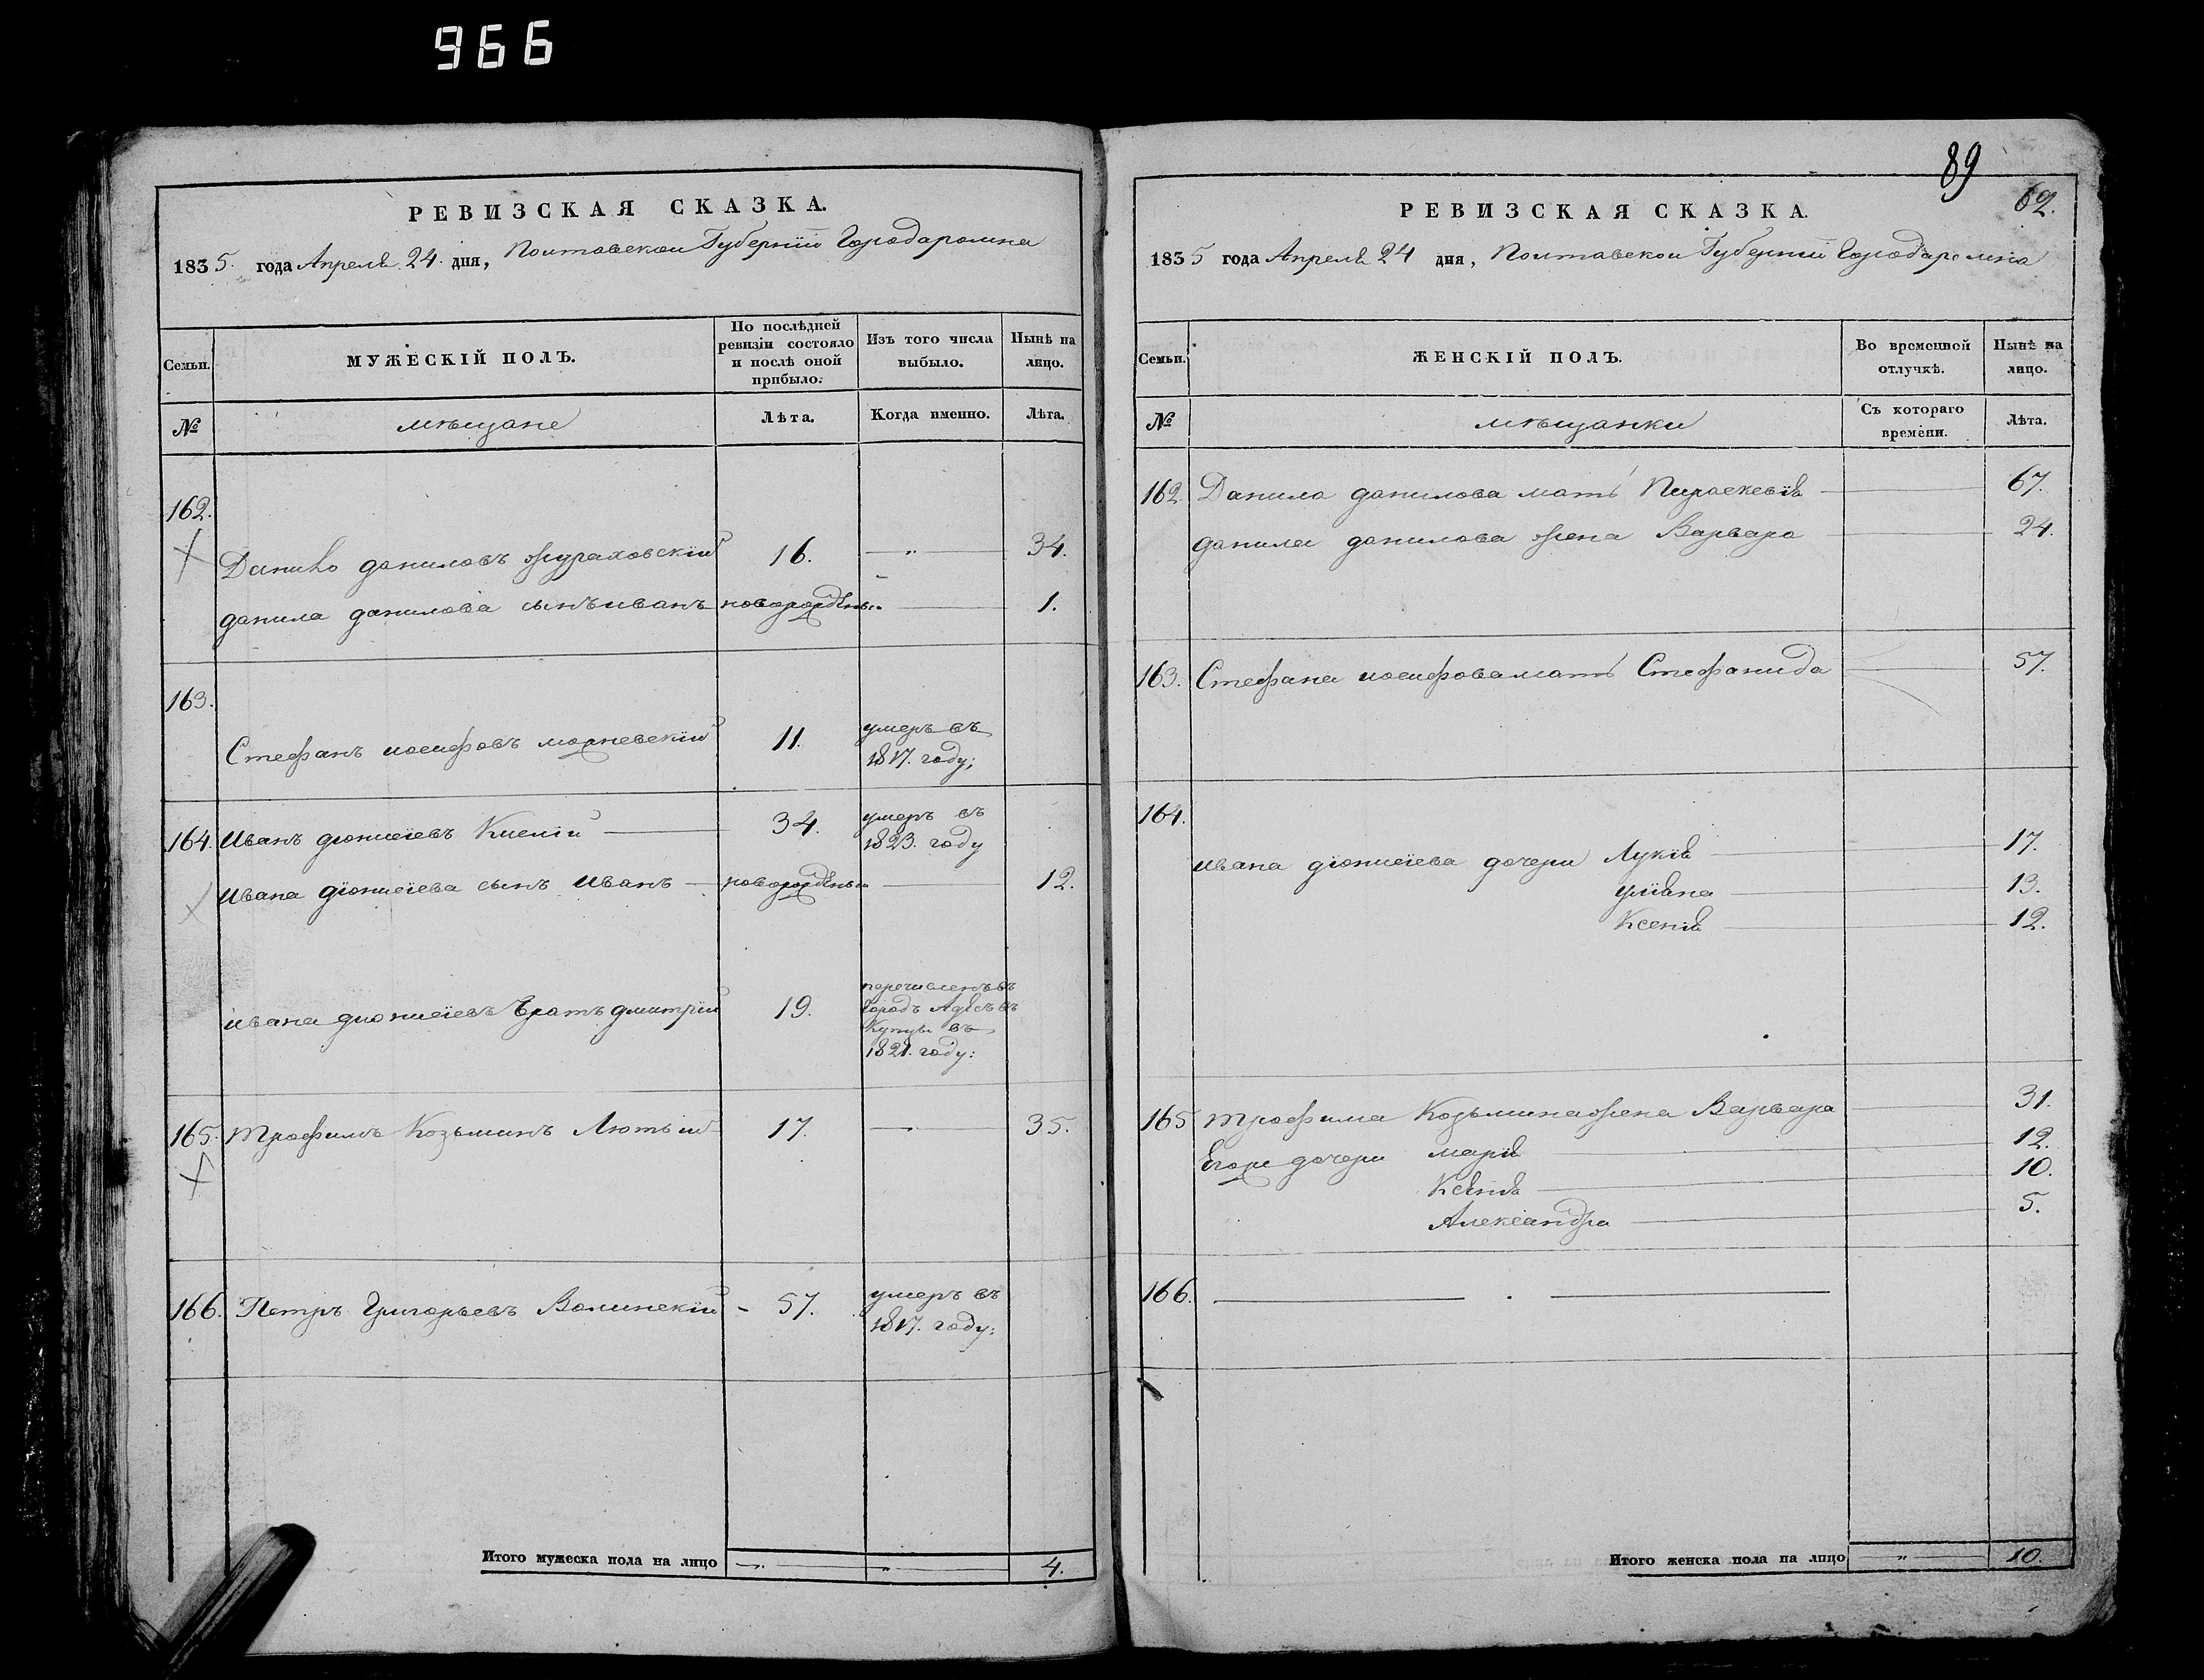 966
РЕВИЗСКАЯ СКАЗКА.
1835. года Апреля 24. дня, Полтавской Губернїи Города ромна
Семьи.
МУЖЕСКІЙ ПОЛЪ.
По послѣдней ревизіи состояло и послѣ оной прибыло.
Изъ того числа выбыло.
Нынѣ на лицо.
№
мѣщане
Лѣта.
Когда именно.
Лѣта.
162.
Данило даниловъ Жураховскїй 16. — " — 34.
данила данилова сынъ иванъ новорожденъ. — 1.
163.
Стефанъ иосифовъ 11. умеръ въ
1817. году;
164. Иванъ дионисїевъ 34. умеръ въ
1823. году
Ивана дїонисїева сынъ Иванъ — новорожденъ — 12.
ивана дионисїевъ братъ дмитрїй 19. перечисленъ въ
городъ въ
Купцы въ
1821. году:
165. трофимъ Козьминъ Лютый 17. — 35.
166. Петръ Григорьевъ Волинскїй - 57. умеръ въ
1817. году:
Итого мужеска пола на лицо 4.
89
62.
РЕВИЗСКАЯ СКАЗКА.
1835 года Апреля 24 дня, Полтавской Губернїи Города ромна
Семьи.
ЖЕНСКІЙ ПОЛЪ.
Во временной отлучкѣ.
Нынѣ на лицо.
№
мѣщанки
Съ котораго времени.
Лѣта.
162. Данила данилова мать — 67.
данила данилова жена Варвара — 24.
163. Стефана иосифова мать Стефанида 57.
164.
ивана дїонисїева дочери Лукїя — 17.
улїяна — 13.
Ксенїя — 12.
165 трофима Козьмина жена Варвара 31.
Его же дочери марїя — 12.
Ксенїя — 10.
Александра — 5.
166. — . —
Итого женска пола на лицо " — 10.